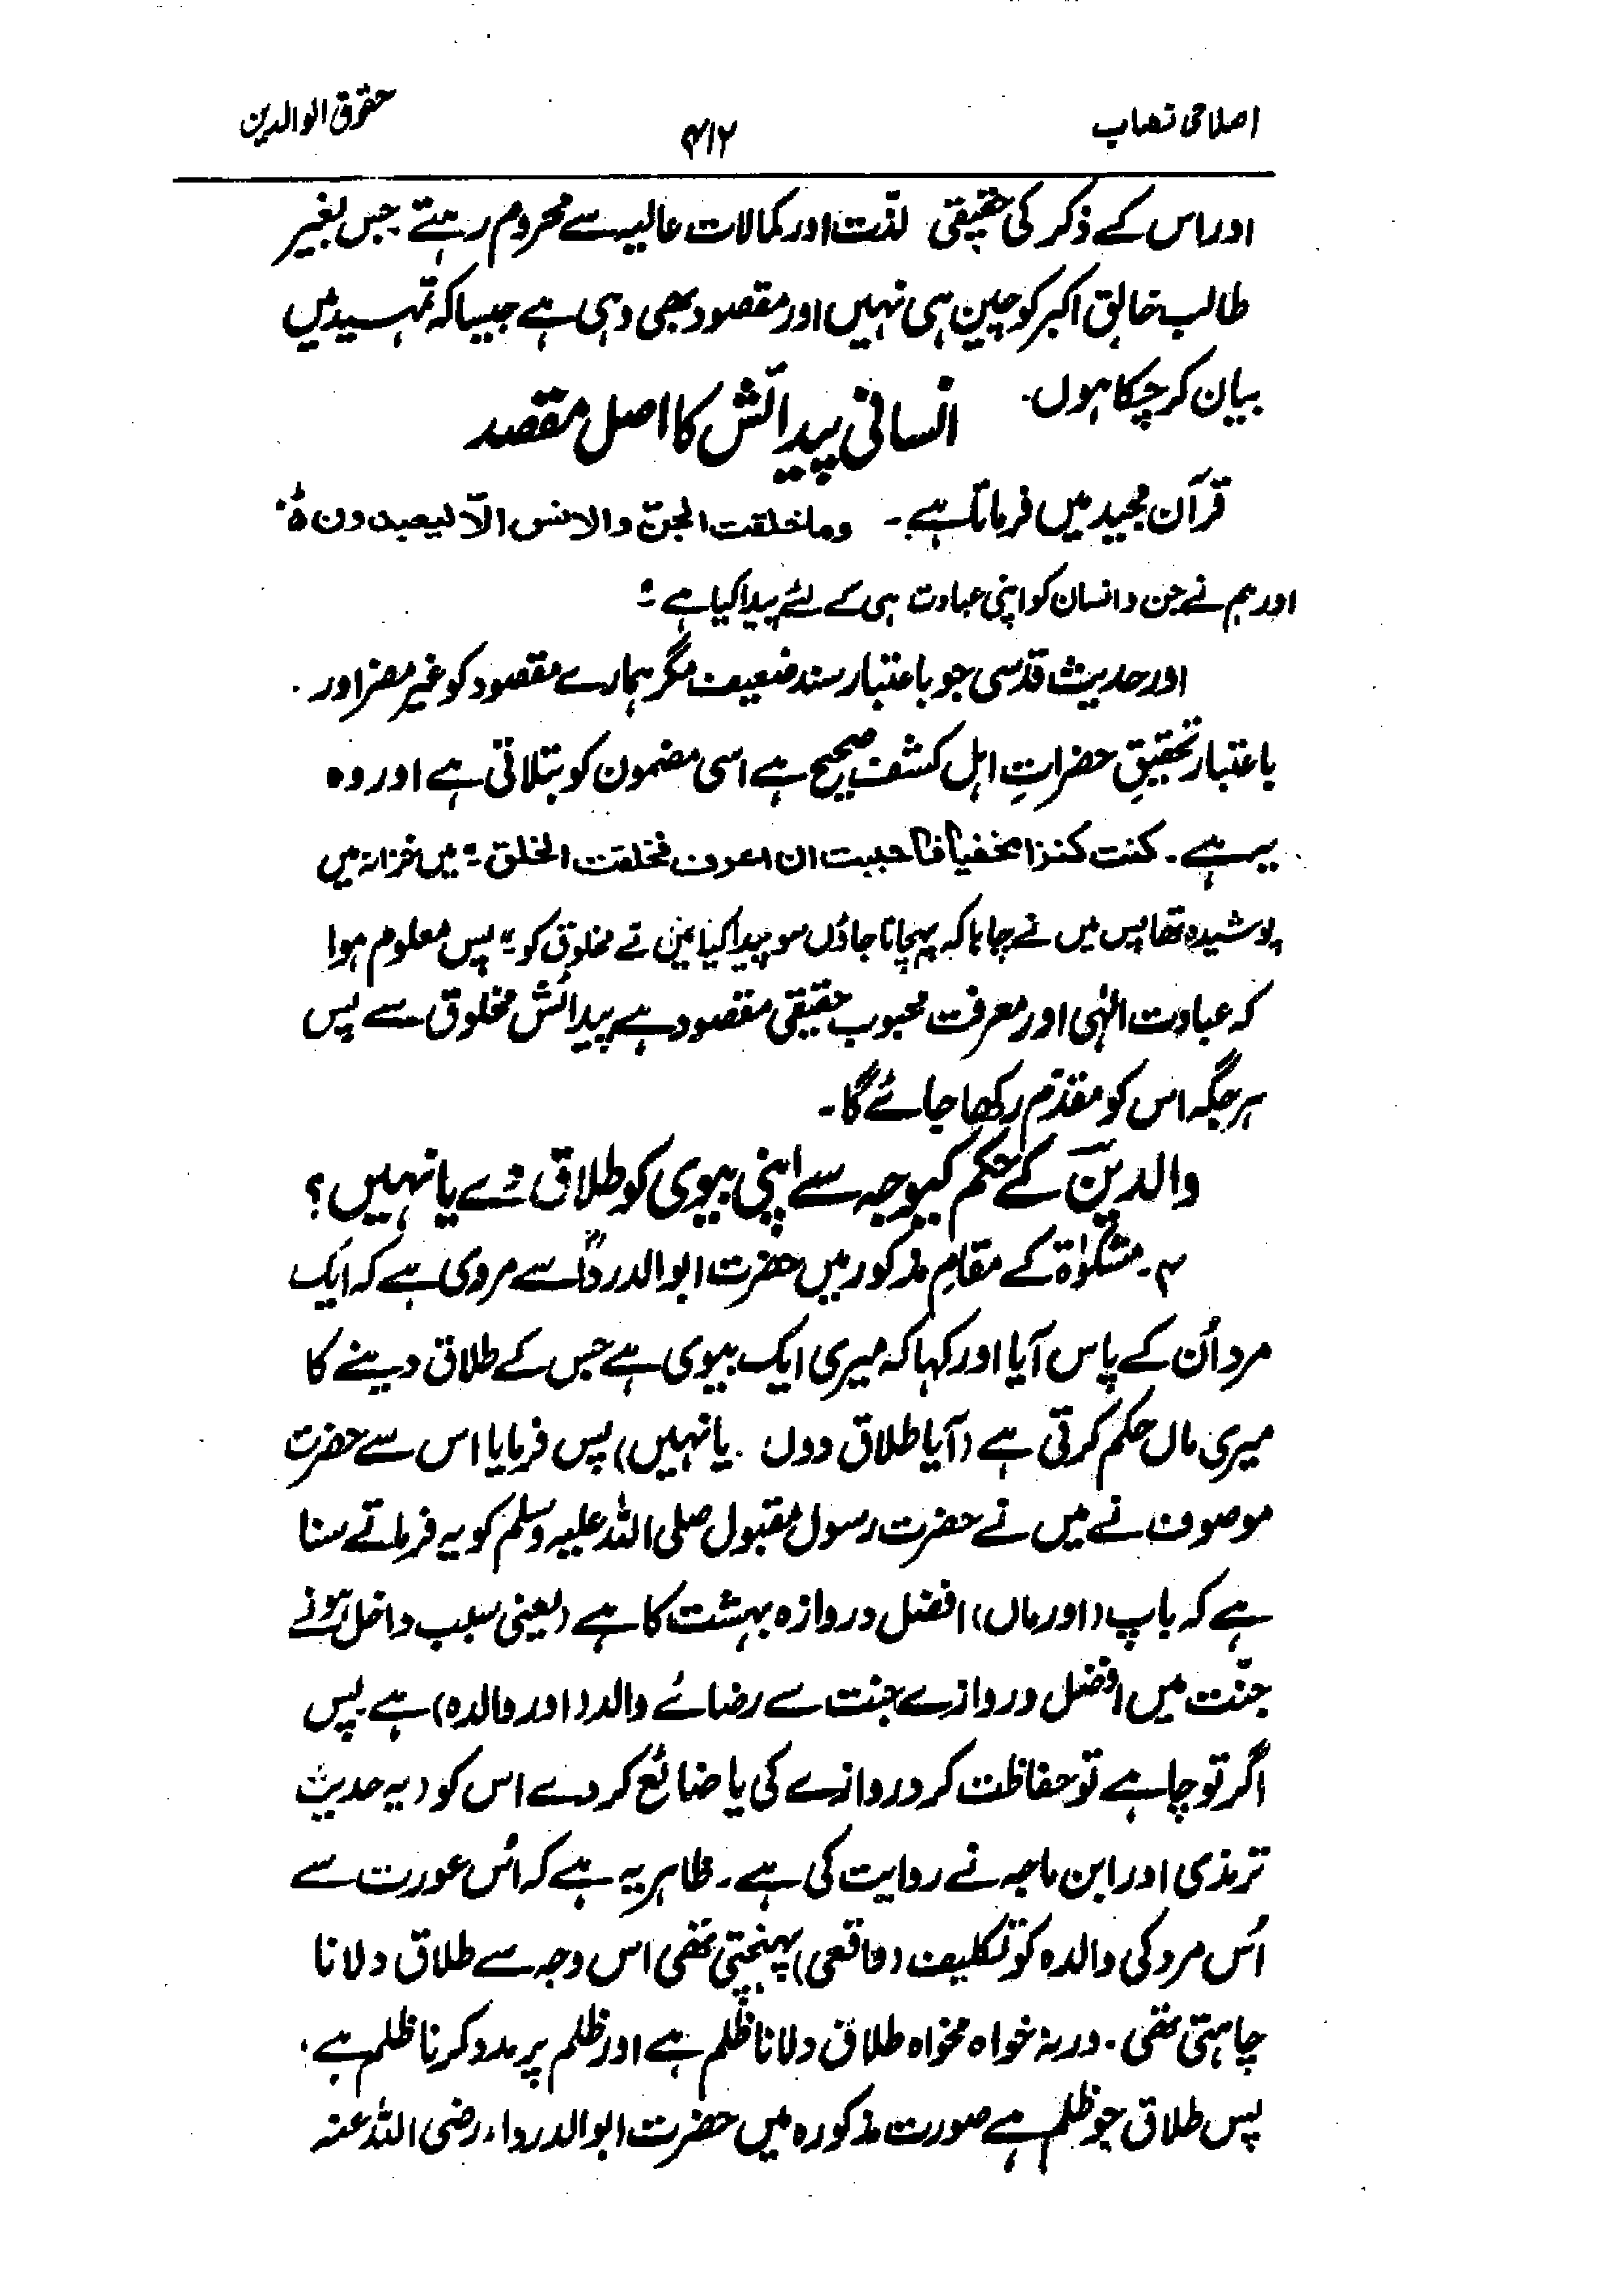 اصلاحی نصاب ۴۱۲ حقوق الوالدین
اور اس کے ذکر کی حقیقی لذّت اور کمالات عالیہ سے محروم رہتے جس بغیر
طالب خالق اکبر کو چین ہی نہیں اور مقصود بھی وہی ہے جیسا کہ تمہید میں
بیان کر چکا ہوں.
انسانی پیدائش کا اصل مقصد
قرآن مجید میں فرماتا ہے۔ وما خلقت الجنّ والانس الّا لیعبدون ہ
اور ہم نے جن و انسان کو اپنی عبادت ہی کے لئے پیدا کیا ہے ؛
اور حدیث قدسی جو باعتبار سند ضعیف مگر ہمارے مقصود کو غیر مضر اور
باعتبار تحقیقِ حضراتِ اہل کشف صحیح ہے اسی مضمون کو بتلاتی ہے اور وہ
یہ ہے۔ کنت کنزا مخفیاً فاحببت ان اعرف فخلقت الخلق ؛ میں خزانہ میں
پوشیدہ تھا پس میں نے چاہا کہ پہچانا جاؤں سو پیدا کیا میں نے مخلوق کو ؛ پس معلوم ہوا
کہ عبادت الٰہی اور معرفت محبوب حقیقی مقصود ہے پیدائش مخلوق سے پس
ہر جگہ اس کو مقدّم رکھا جائے گا۔
والدین کے حکم کیوجہ سے اپنی بیوی کو طلاق دے یا نہیں؟
۴۔ مشکوٰۃ کے مقامِ مذکور میں حضرت ابوالدرداؓ سے مروی ہے کہ ایک
مرد اُن کے پاس آیا اور کہا کہ میری ایک بیوی ہے جس کے طلاق دینے کا
میری ماں حکم کرتی ہے (آیا طلاق دوں یا نہیں) پس فرمایا اس سے حضرت
موصوف نے میں نے حضرت رسول مقبول صلی اللہ علیہ وسلم کو یہ فرماتے سنا
ہے کہ باپ (اور ماں) افضل دروازہ بہشت کا ہے (یعنی سبب داخل ہونے
جنّت میں افضل دروازے جنت سے رضائے والد (اور والدہ) ہے پس
اگر تو چاہے تو حفاظت کر دروازے کی یا ضائع کر دے اس کو (یہ حدیث
ترمذی اور ابن ماجہ نے روایت کی ہے۔ ظاہر یہ ہے کہ اُس عورت سے
اُس مرد کی والدہ کو تکلیف (واقعی) پہنچتی تھی اس وجہ سے طلاق دلانا
چاہتی تھی. ورنہ خواہ مخواہ طلاق دلانا ظلم ہے اور ظلم پر مدد کرنا ظلم ہے.
پس طلاق جو ظلم ہے صورت مذکورہ میں حضرت ابوالدرداء رضی اللہ عنہ